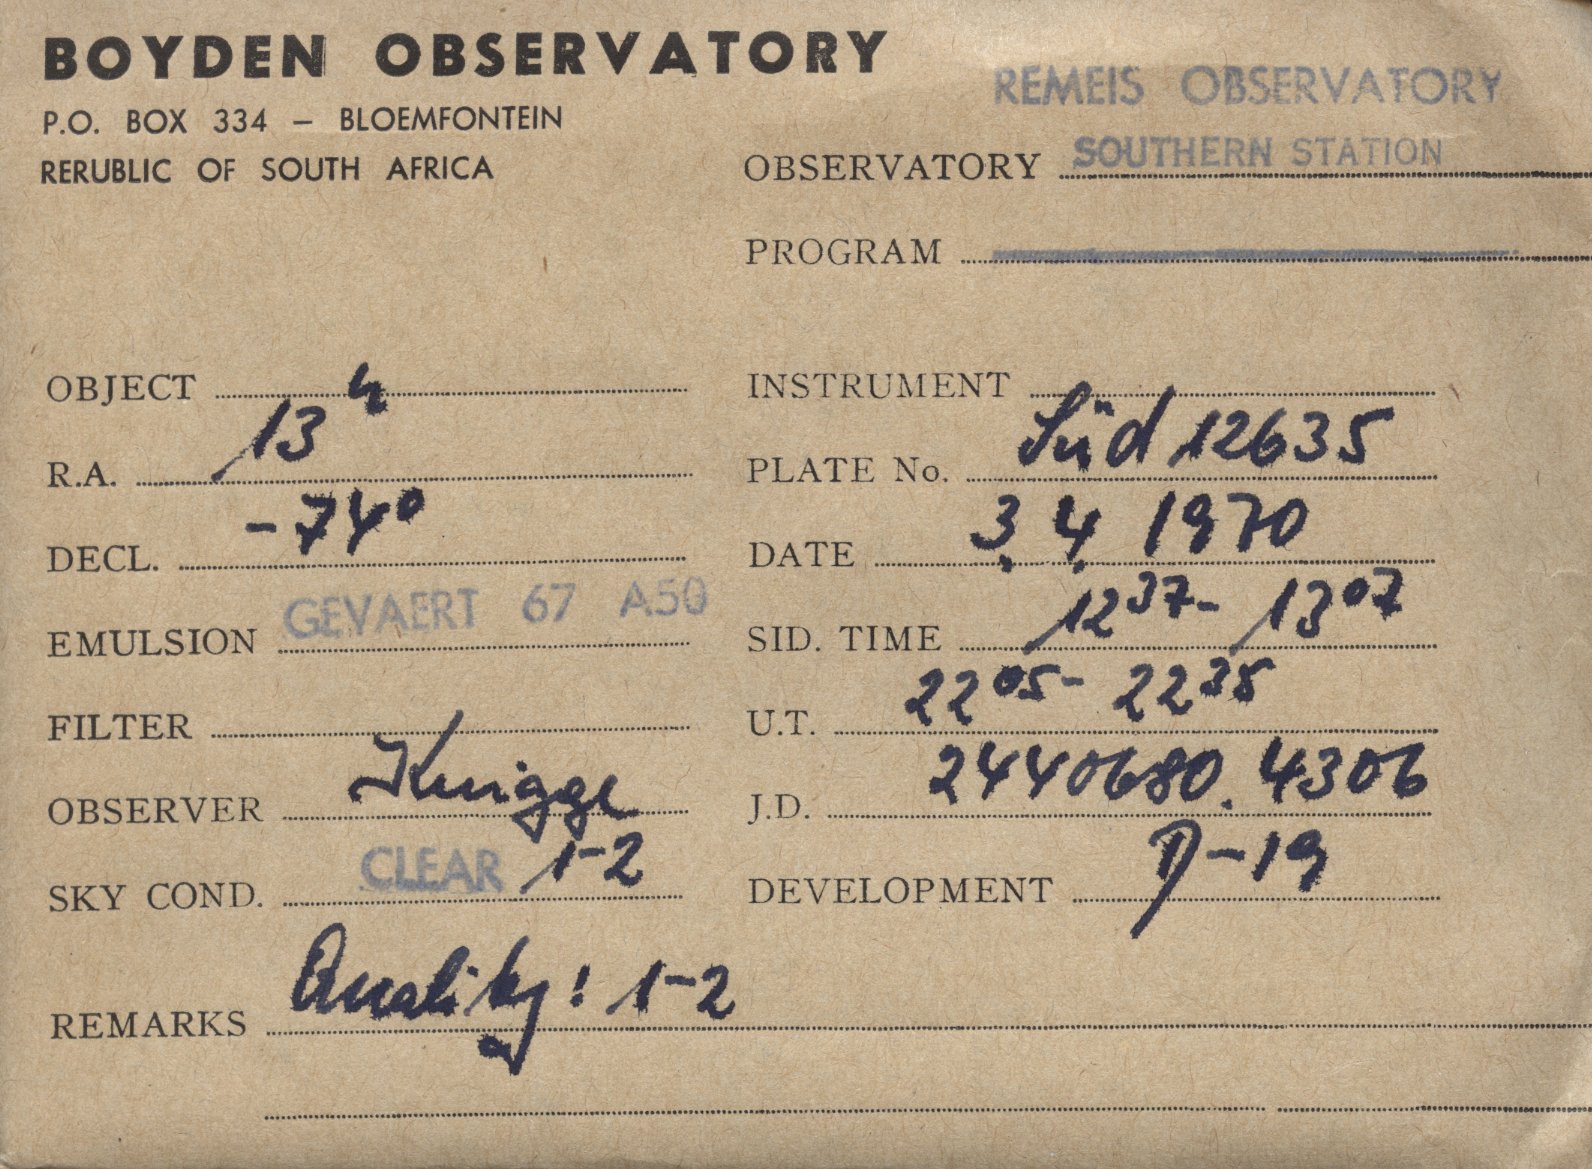 BOYDEN OBSERVATORY
P.O. BOX 334 – BLOEMFONTEIN
RERUBLIC OF SOUTH AFRICA
REMEIS OBSERVATORY
OBSERVATORY SOUTHERN STATION
PROGRAM
OBJECT
INSTRUMENT
R.A. 13h
PLATE No. Süd 12635
DECL. -74°
DATE 3. 4. 1970
EMULSION GEVAERT 67 A50
SID. TIME 12 37 - 13 07
FILTER
U.T. 22 05 - 22 35
OBSERVER Knigge
J.D. 2440680.4306
SKY COND. CLEAR 1-2
DEVELOPMENT D-19
REMARKS Quality: 1-2